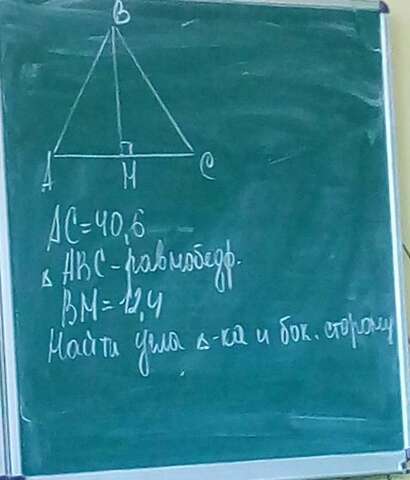 B
A H C
AC=40,6
△ ABC-равнобедр.
BH=12,4
Найти угла △-ка и бок. сторону